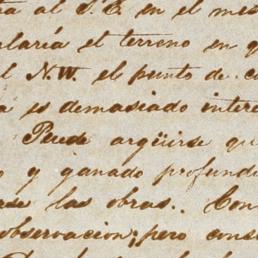 ta al S.E. en el mes
laría el terreno en q
l N.W. el punto de c
a es demasiado intere
Puede argüirse qu
o y ganado profundi
rse las obras.. Con
observacion; pero cons